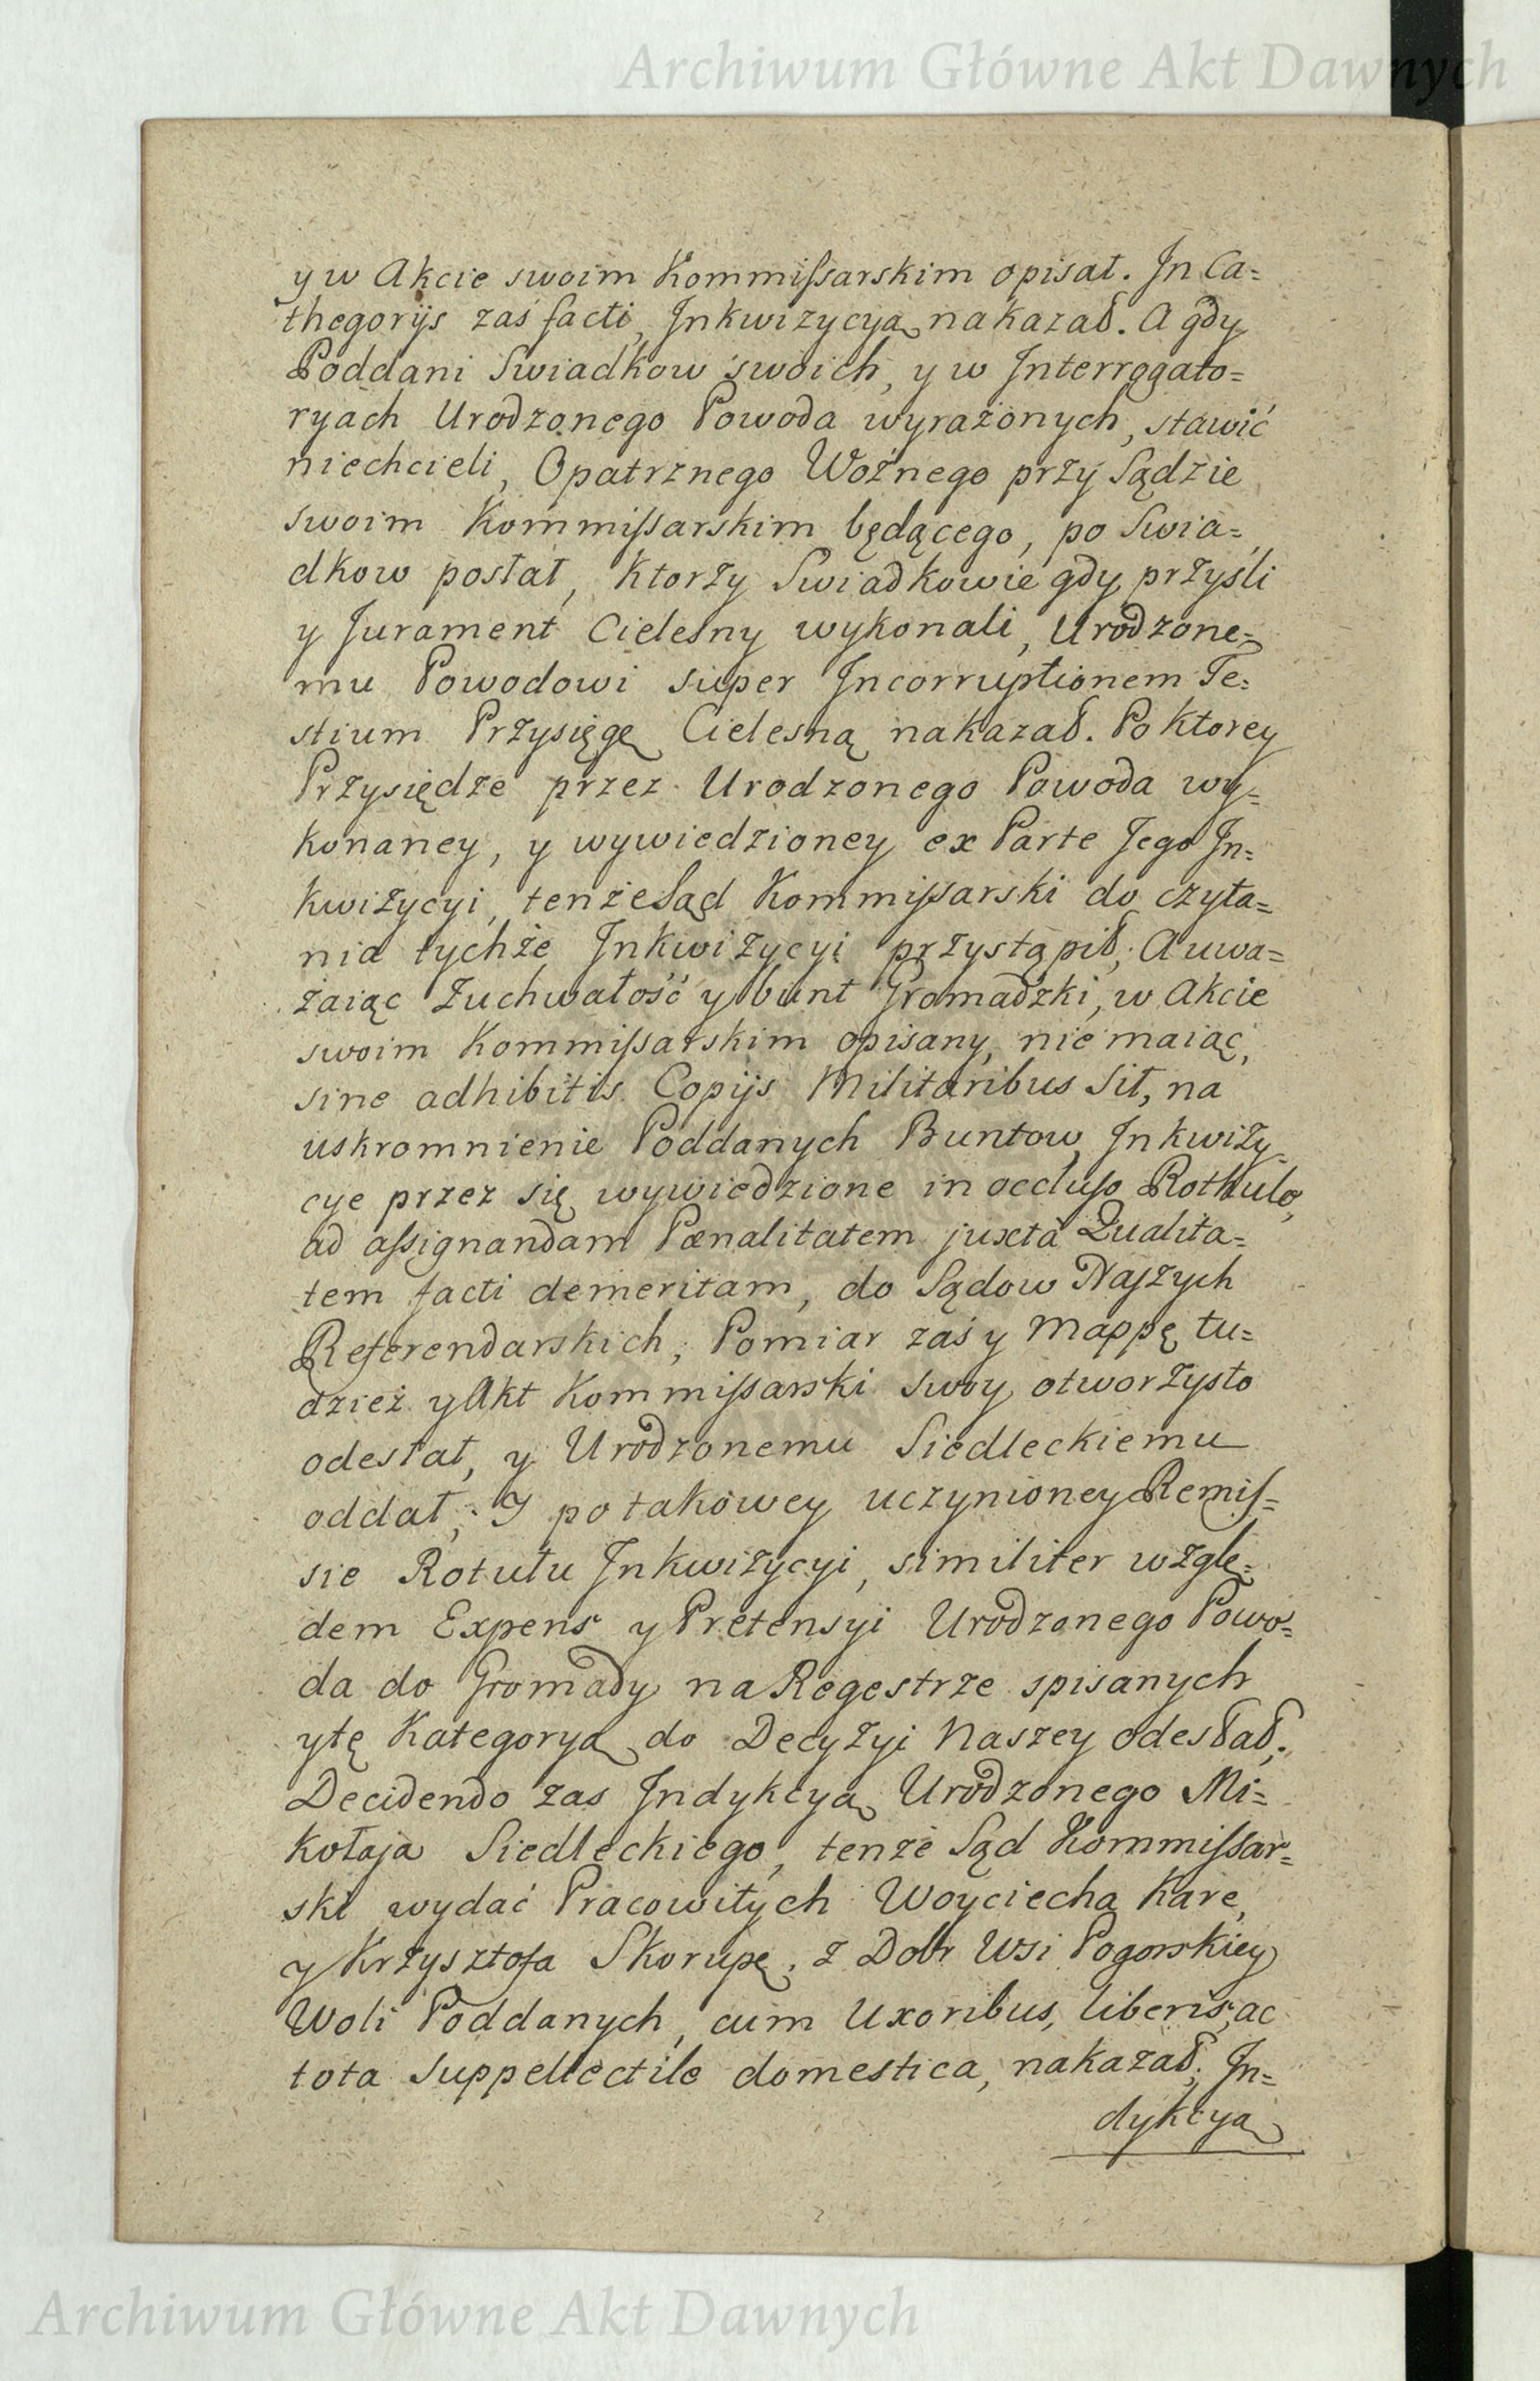 Archiwum Główne Akt Dawnych
y w Akcie swoim Kommiſsarskim opisał. In Ca=
thegorijs zaś facti, Inkwizycyą nakazał. A gdy
Poddani Swiadkow swoich, y w Interrogato=
ryach Urodzonego Powoda wyrażonych, stawić
niechcieli, Opatrznego Woźnego przy Sądzie
swoim Kommiſsarskim będącego, po Swia=
dkow posłał, Ktorzy Swiadkowie gdy przyśli
y Jurament Cielesny wykonali, Urodzone=
mu Powodowi super Incorruptionem Te=
stium Przysięgę Cielesną nakazał. Po Ktorey
Przysiędze przez Urodzonego Powoda wy=
konaney, y wywiedzioney ex Parte Jego In=
kwizycyi, tenże Sąd Kommiſsarski do czyta=
nia tychże Inkwizycyi przystąpił; A uwa=
żaiąc Zuchwałość y bunt Gromadzki, w Akcie
swoim Kommiſsarskim opisany, nie maiąc,
sine adhibitis Copijs Militaribus Sił, na
uskromnienie Poddanych Buntow, Inkwizy=
cye przez się wywiedzione in occluſo Rothulo,
ad aſsignandam Pœnalitatem juxta Qualita=
tem facti demeritam, do Sądow Naſzych
Referendarskich; Pomiar zaś y Mappę tu=
dzież y Akt Kommiſsarski swoy otworzysto
odesłał, y Urodzonemu Siedleckiemu
oddał; Y po takowey uczynioney Remiſ=
sie Rotułu Inkwizycyi, similiter wzglę=
dem Expens y Pretensyi Urodzonego Powo=
da do Gromady na Regestrze spisanych
y tę Kategoryą do Decyzyi Naszey odesłał;
Decidendo zas Indykcyą Urodzonego Mi=
kołaja Siedleckiego, tenże Sąd Kommiſsar=
ski wydać Pracowitych Woyciecha Karę,
y Krzysztofa Skorupę, z Dobr Wsi Pogorskiey
Woli Poddanych, cum Uxoribus, liberis, ac
tota Suppellectile domestica, nakazał; In=
dykcyą
Archiwum Główne Akt Dawnych